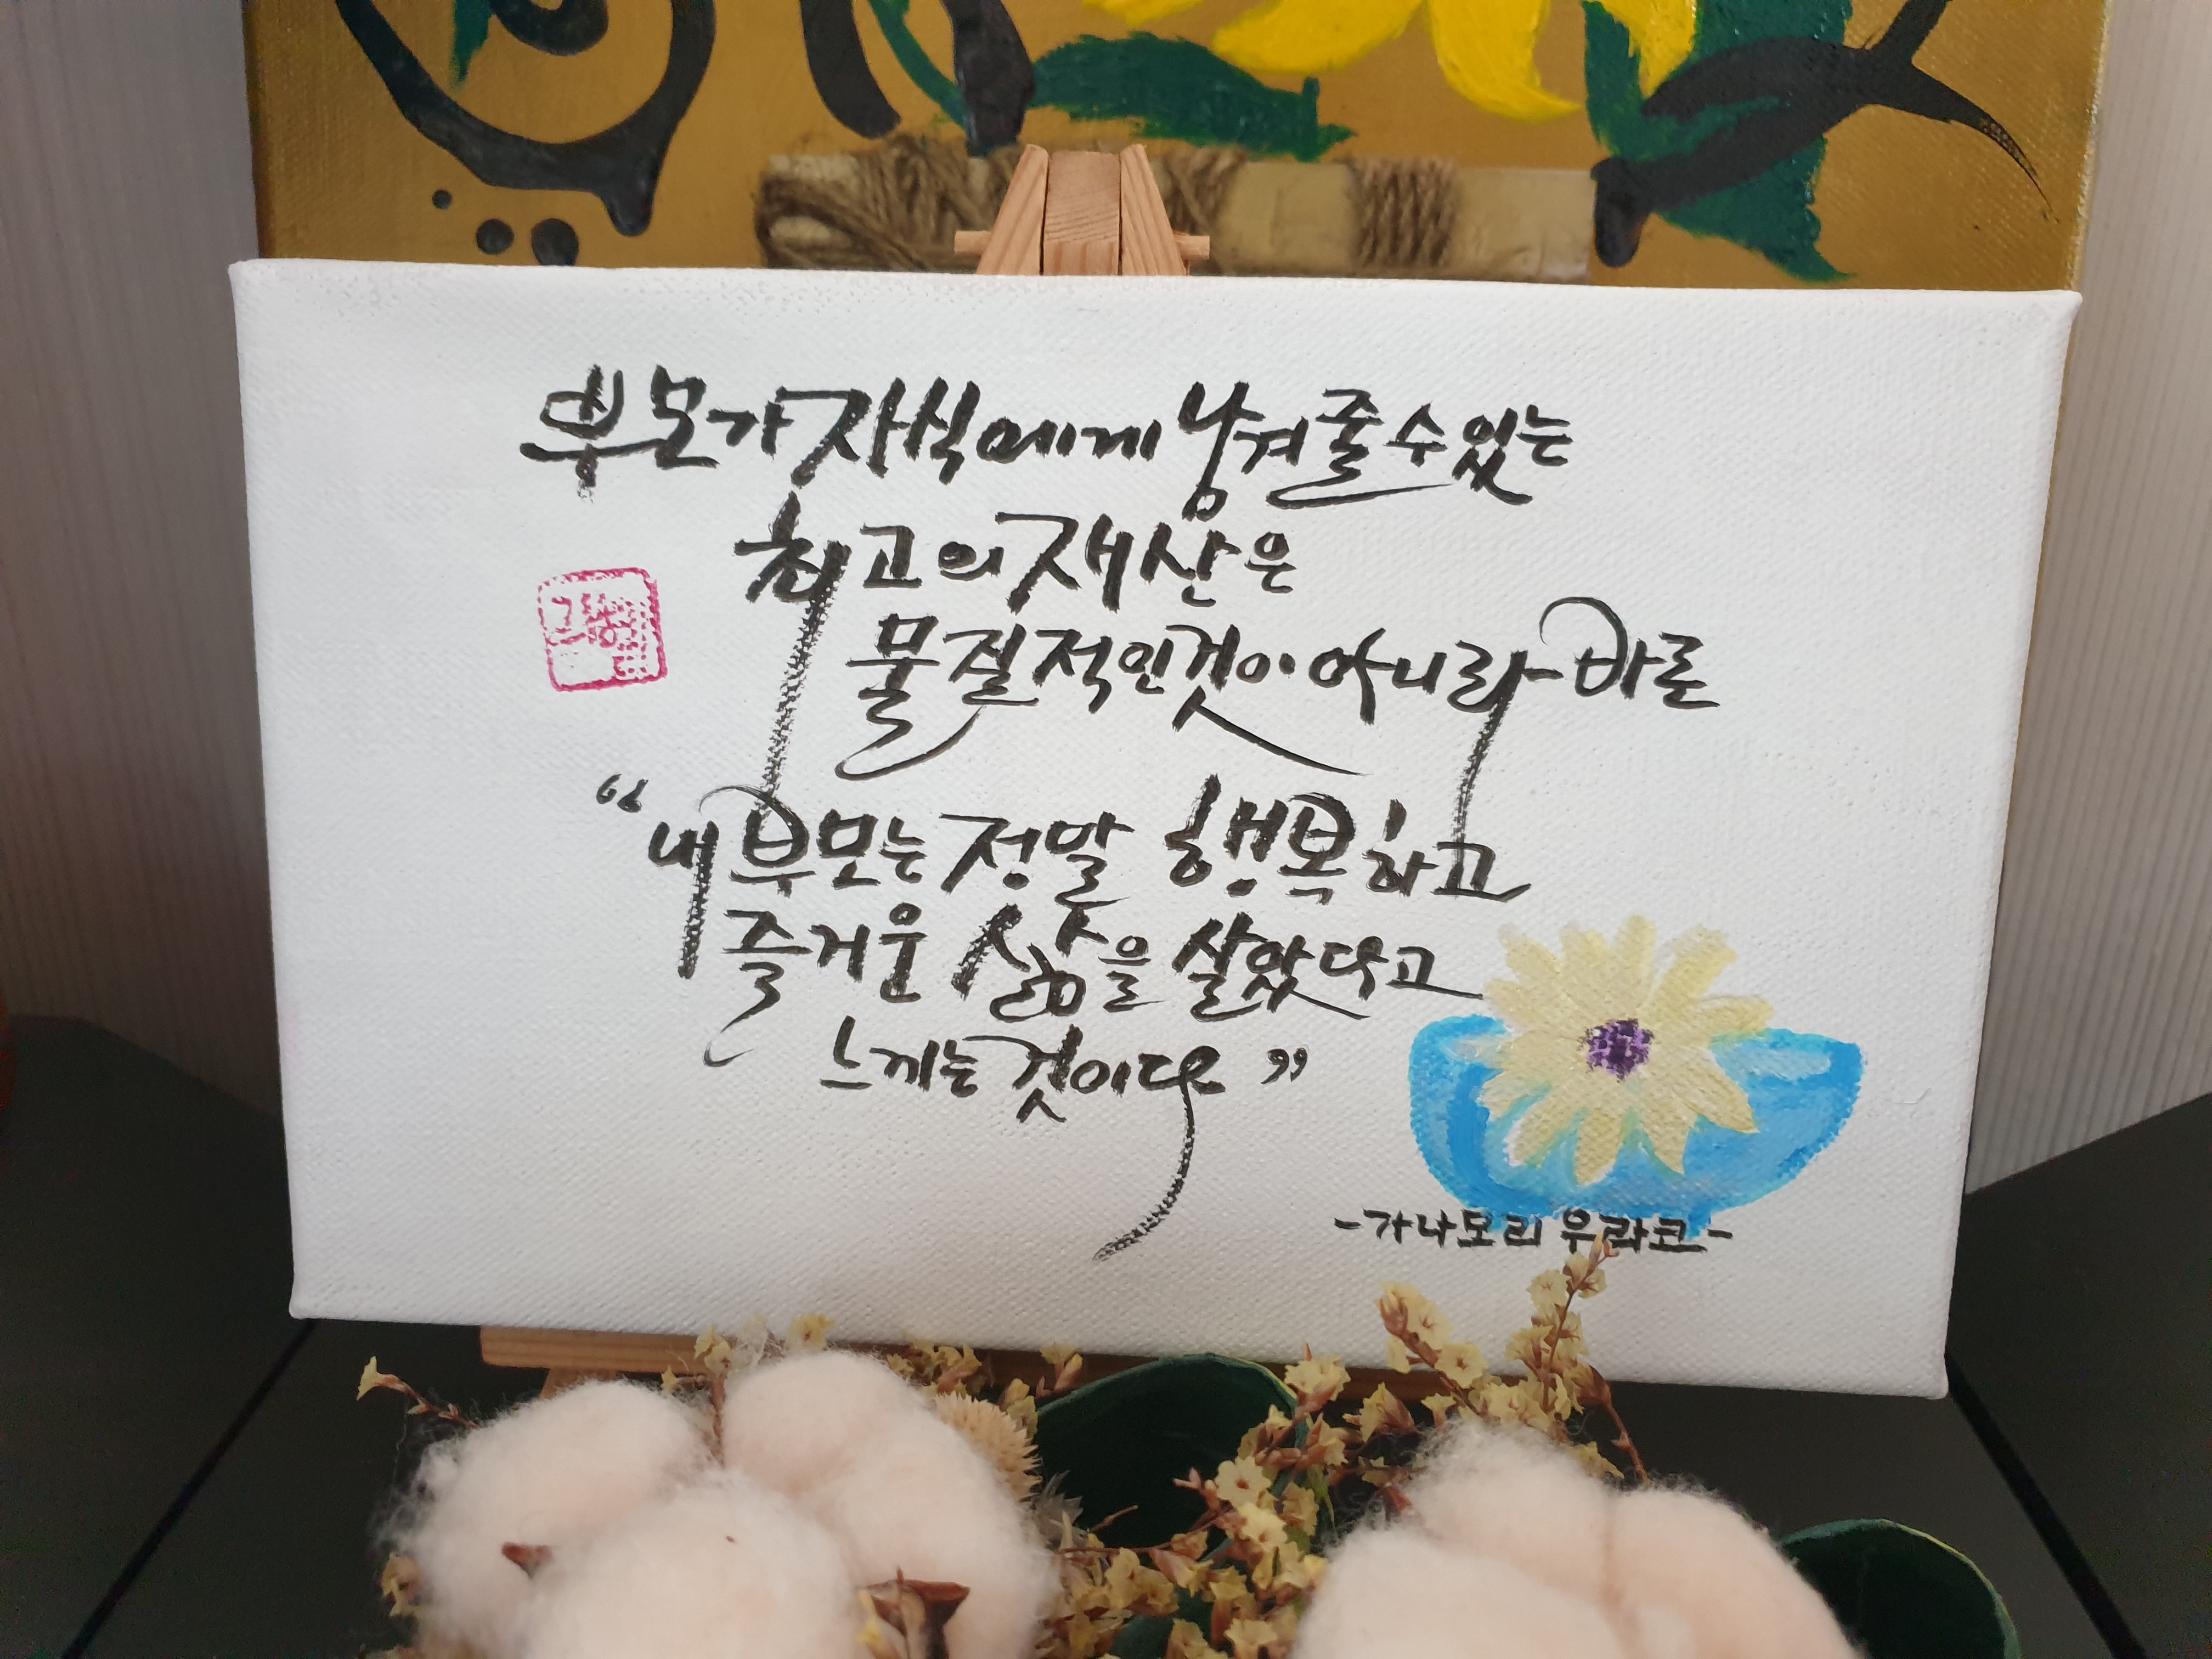 부모가 자식에게 남겨줄 수 있는
최고의 재산은
물질적인것이 아니라 바로
“내 부모는 정말 행복하고
즐거운 삶을 살았다고
느끼는 것이다”
-가나모리 우라코-